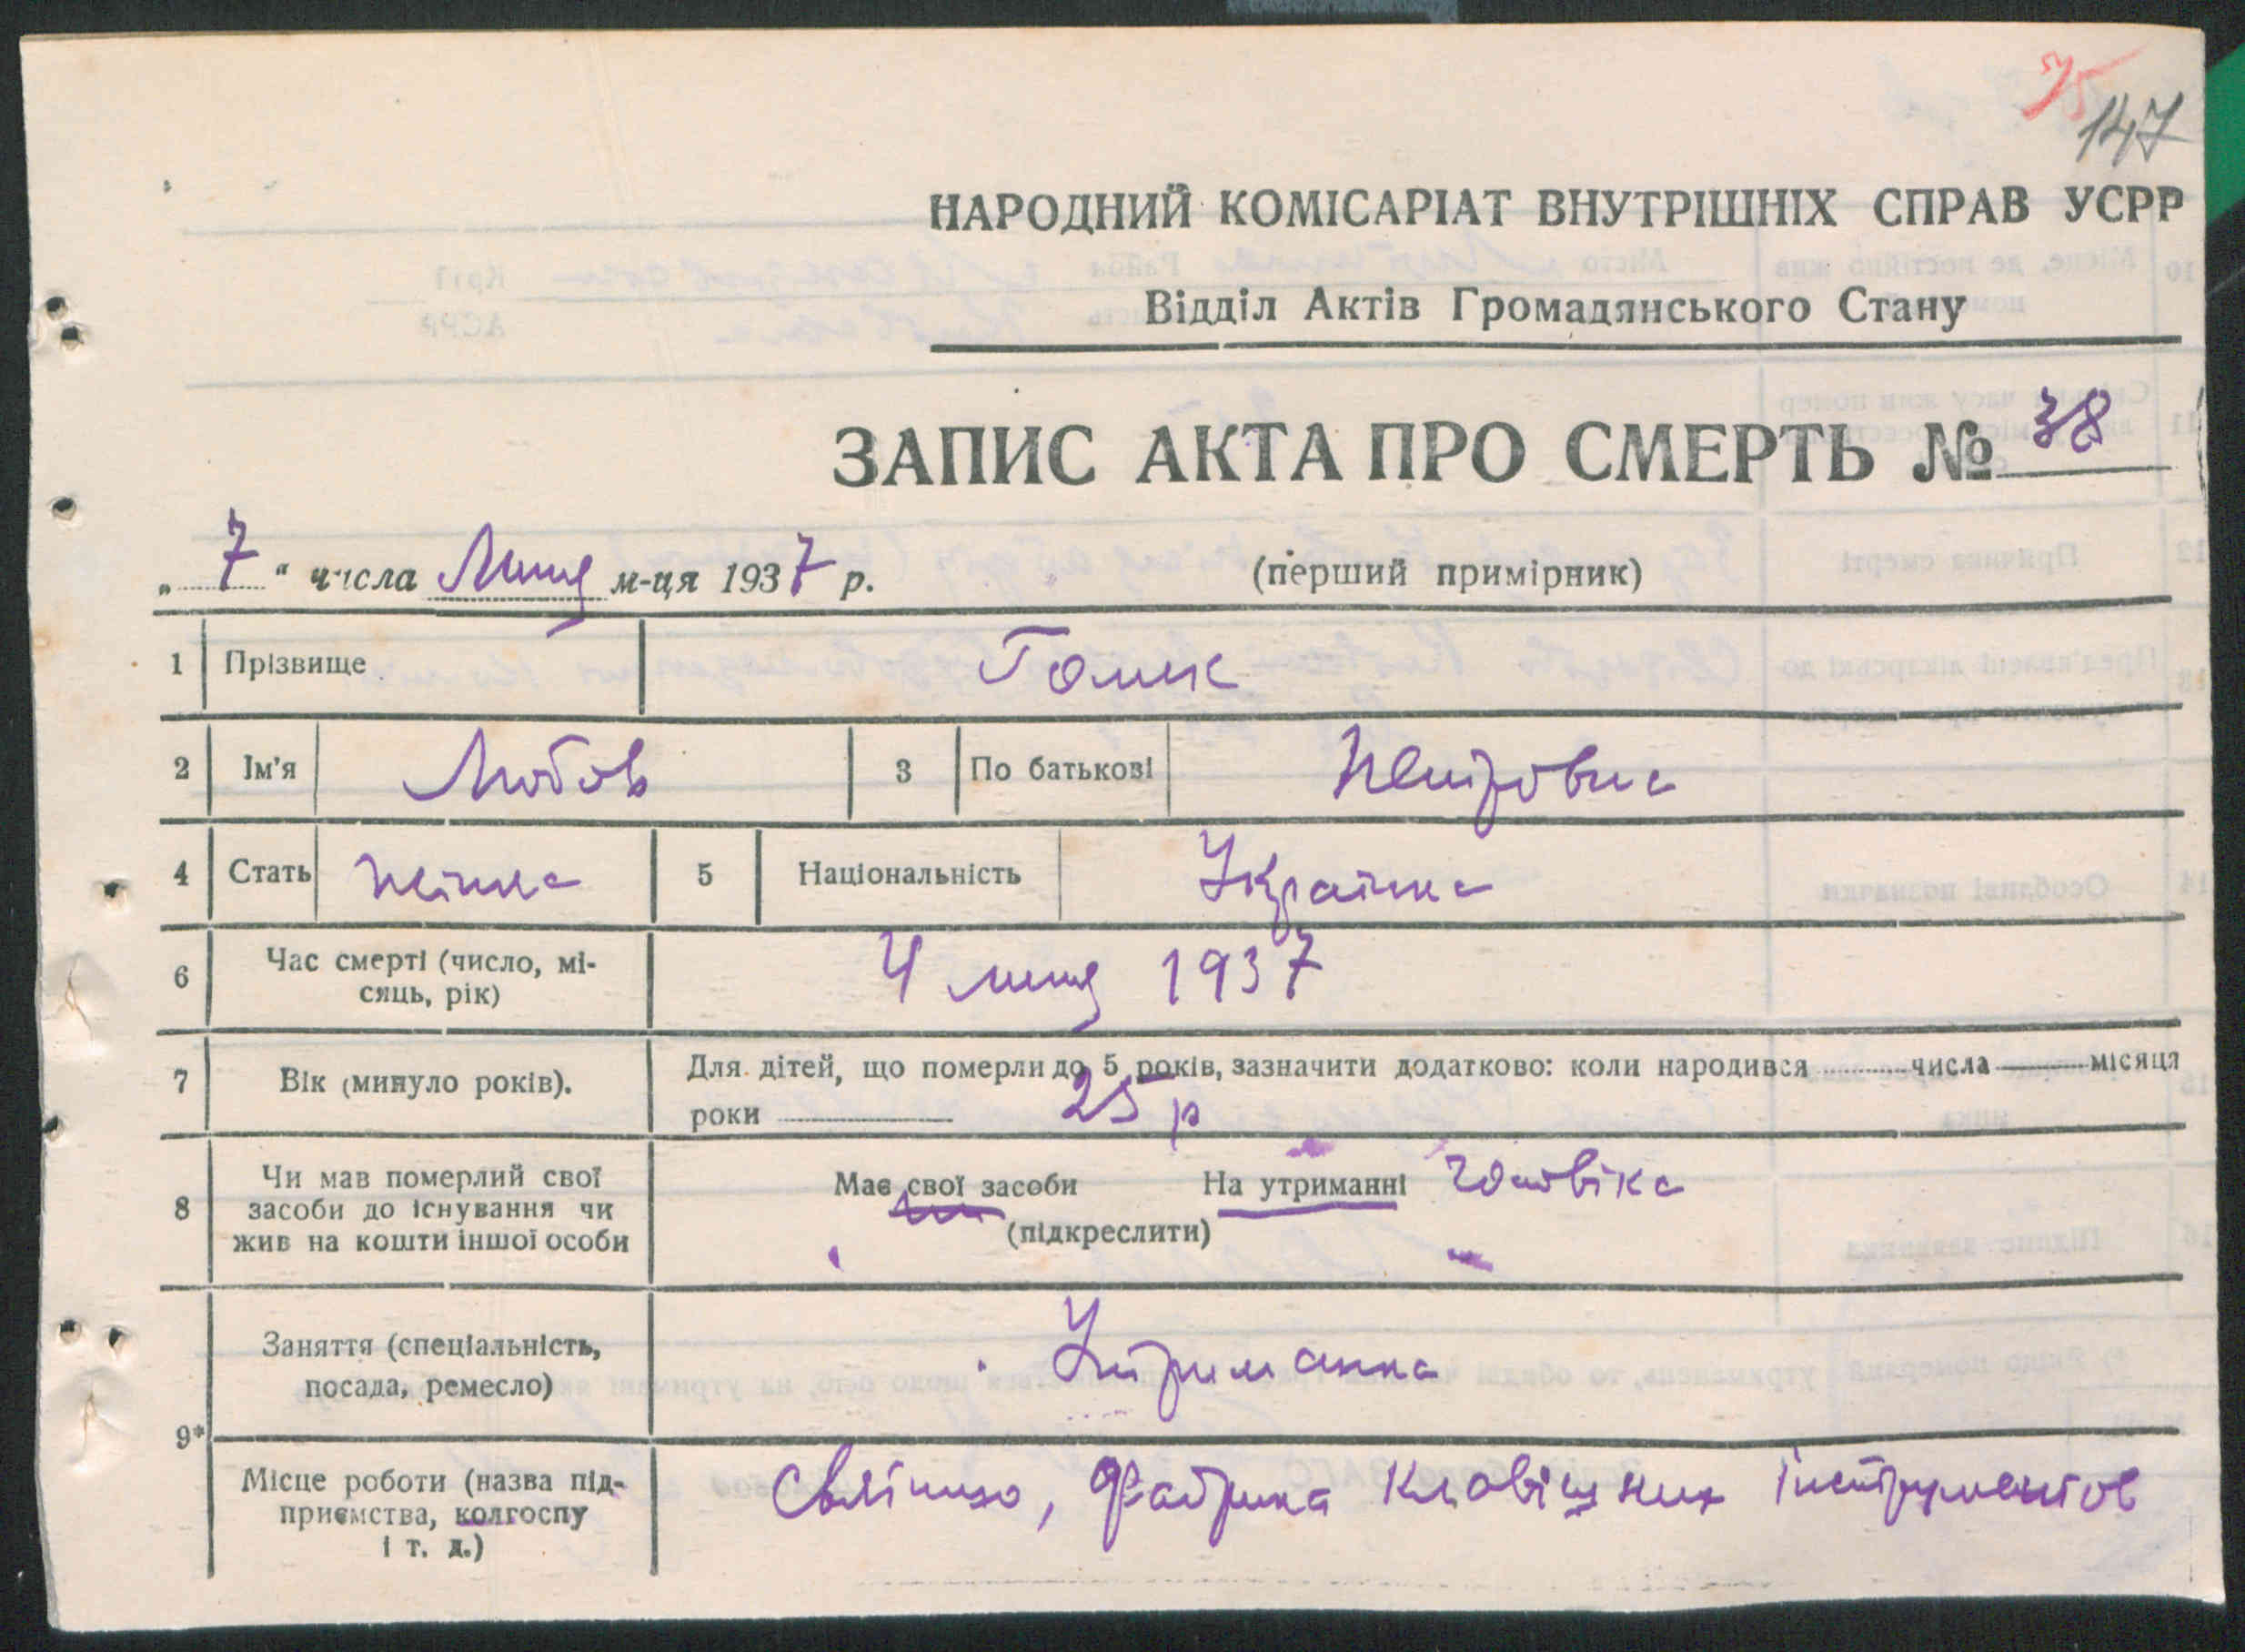 75
147
НАРОДНИЙ КОМІСАРІАТ ВНУТРІШНІХ СПРАВ УСРР
Відділ Актів Громадянського Стану
ЗАПИС АКТА ПРО СМЕРТЬ № 38
„ 7 “ числа Липня м-ця 1937 р. (перший примірник)
1 Прізвище Голик
2 Ім'я Любов 3 По батькові Петровна
4 Стать жінка 5 Національність Українка
6 Час смерті (число, мі-
сяць, рік) 4 липня 1937
7 Вік (минуло років). Для дітей, що померли до 5 років, зазначити додатково: коли народився числа місяця
роки 25 р
8 Чи мав померлий свої
засоби до існування чи
жив на кошти іншої особи
Має свої засоби На утриманні чоловіка
(підкреслити)
9*
Заняття (спеціальність,
посада, ремесло) Утриманка
Місце роботи (назва під-
приємства, колгоспу
і т. д.)
Фабрика клавішних інструментов